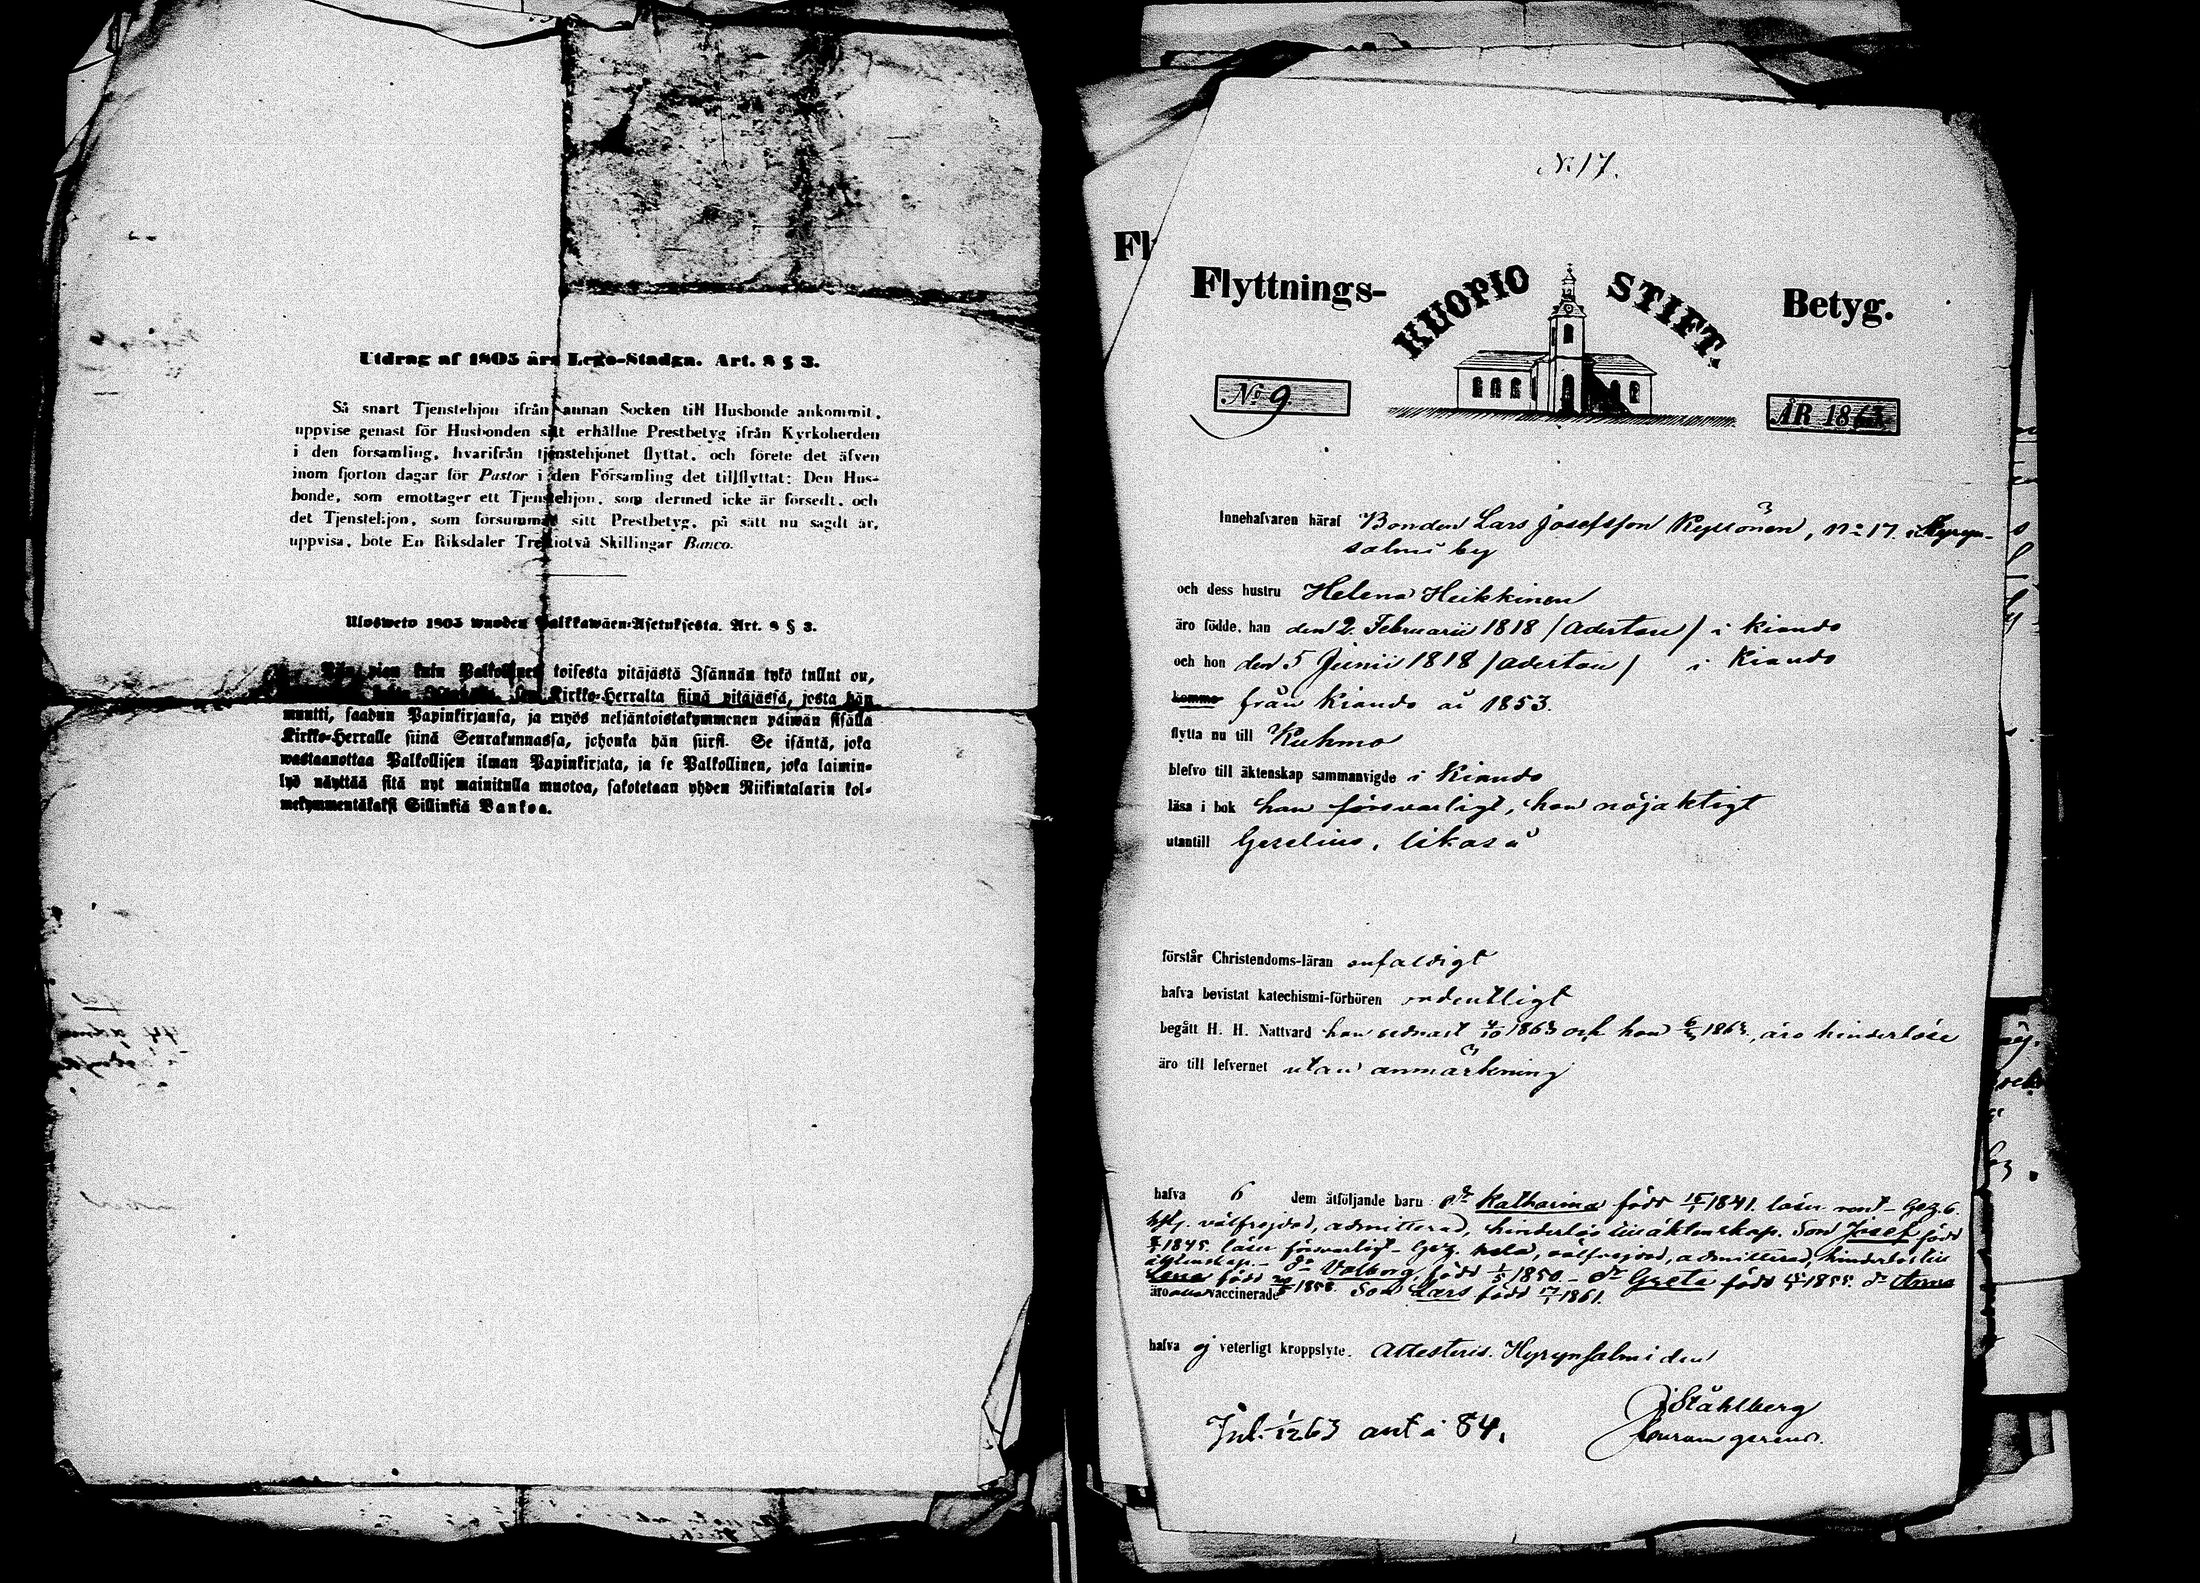 Utdrag af 1805 års Lego-Stadga. Art. 8 § 3.
Så snart Tjenstehjon ifrån annan Socken till Husbonde ankommit,
uppvise genast för Husbonden sitt erhållne Prestbetyg ifrån Kyrkoherden
i den församling, hvarifrån tjenstehjonet flyttat, och förete det äfven
inom fjorton dagar för Pastor i den Församling det tillflyttat: Den Hus-
bonde, som emottager ett Tjenstehjon, som dermed icke är försedt, och
det Tjenstehjon, som försummat sitt Prestbetyg, på sätt nu sagdt är,
uppvisa, böte En Riksdaler Trettiotvå Skillingar Banco.
Ulosweto 1805 wuoden Palkkawäen-Asetuksesta. Art. 8 § 3.
pian kuin Palkollinen toisesta pitäjästä Isännän tykö tullut on,
Kirkko-Herralta siinä pitäjässä, josta hän
muutti, saadun Papinkirjansa, ja myös neljäntoistakymmenen päiwän sisällä
Kirkko-Herralle siinä Seurakunnassa, johonka hän siirsi. Se isäntä, joka
wastaanottaa Palkollisen ilman Papinkirjata, ja se Palkollinen, joka laimin-
lyö näyttää sitä nyt mainitulla muotoa, sakotetaan yhden Riikintalarin kol-
mekymmentäkaksi Sillinkiä Bankoa.
N:17.
Fl
Flyttnings- KUOPIO STIFT. Betyg.
No 9 ÅR 1863.
Innehafvaren häraf Bonden Lars Josefsson Kyllönen, No 17 i Hyryn-
salmi by
och dess hustru Helena Heikkinen
äro födde, han den 2 Februarii 1818 /aderton/ i Kiando
och hon den 5 Junii 1818 /aderton/ i Kiando
komma från Kiando år 1853.
flytta nu till Kuhmo
blefvo till äktenskap sammanvigde i Kiando
läsa i bok han försvarligt, hon nöjaktigt
utantill Gezelius, likaså
förstår Christendoms-läran enfaldigt
hafva bevistat katechismi-förhören ordentligt
begått H. H. Nattvard han sednast 4/10 1863 och hon 1863, äro hinderlöse
äro till lefvernet utan anmärkning
hafva 6 dem åtföljande barn Katharina född 1841. läser rent - Gez. 6.
välfrejdad, admitterad, hinderlös till äktenskap. Son Josef född
1845. läser försvarligt - Gez. hela, välfrejdad, admitterad, hinderlös till
äktenskap. - do Valborg född 1/5 1850 - dr Greta född 1855. dr Anna
Lena född 20 1858. Son Lars född 17/1 1861.
äro alla vaccinerade
hafva ej veterligt kroppslyte. Attesteras. Hyrynsalmi den
J Ståhlberg
Inl. 1/12 63 ant å 84.